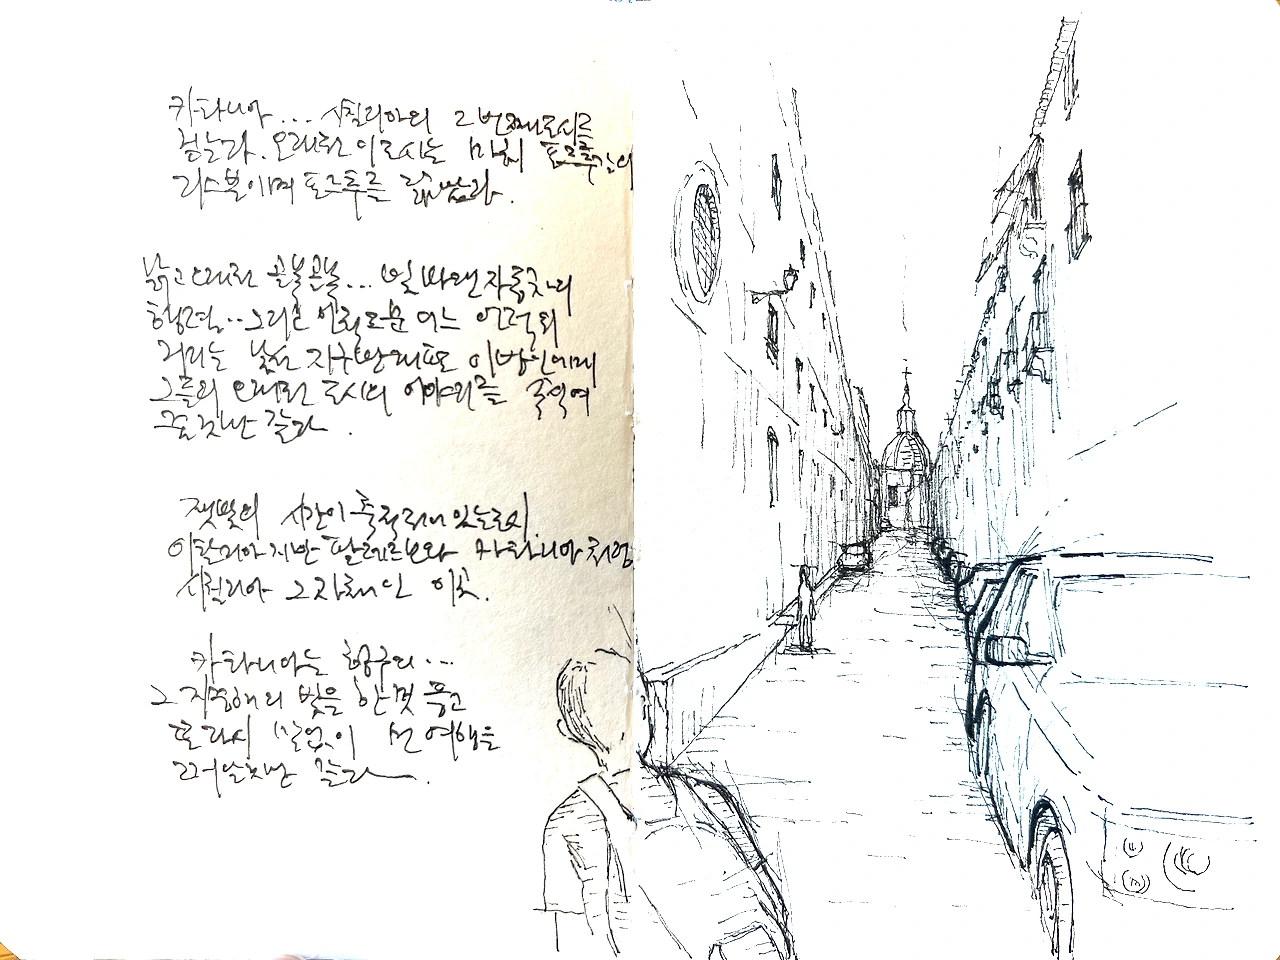 카타니아... 시칠리아의 2번째 도시를
걷는다. 오래된 이 도시는 마치 포르투갈의
리스본이며 포르투를 닮았다.
낡고 오래된 골목골목... 빛바랜 자동차의
행렬.. 그리고 어느 언덕의
거리는 낯선 이방인에게
그들의 오래된 도시의 이야기를 속삭여
줄 것만 같다.
잿빛의 시간이 축적되어 있는 도시.
이탈리아지만 팔레르모와 카타니아처럼
시칠리아 그 자체인 이곳.
카타니아는 항구의...
그 지중해의 빛을 한껏 품고
또 다시 말없이 선 여행을
끄덕일 것만 같다.